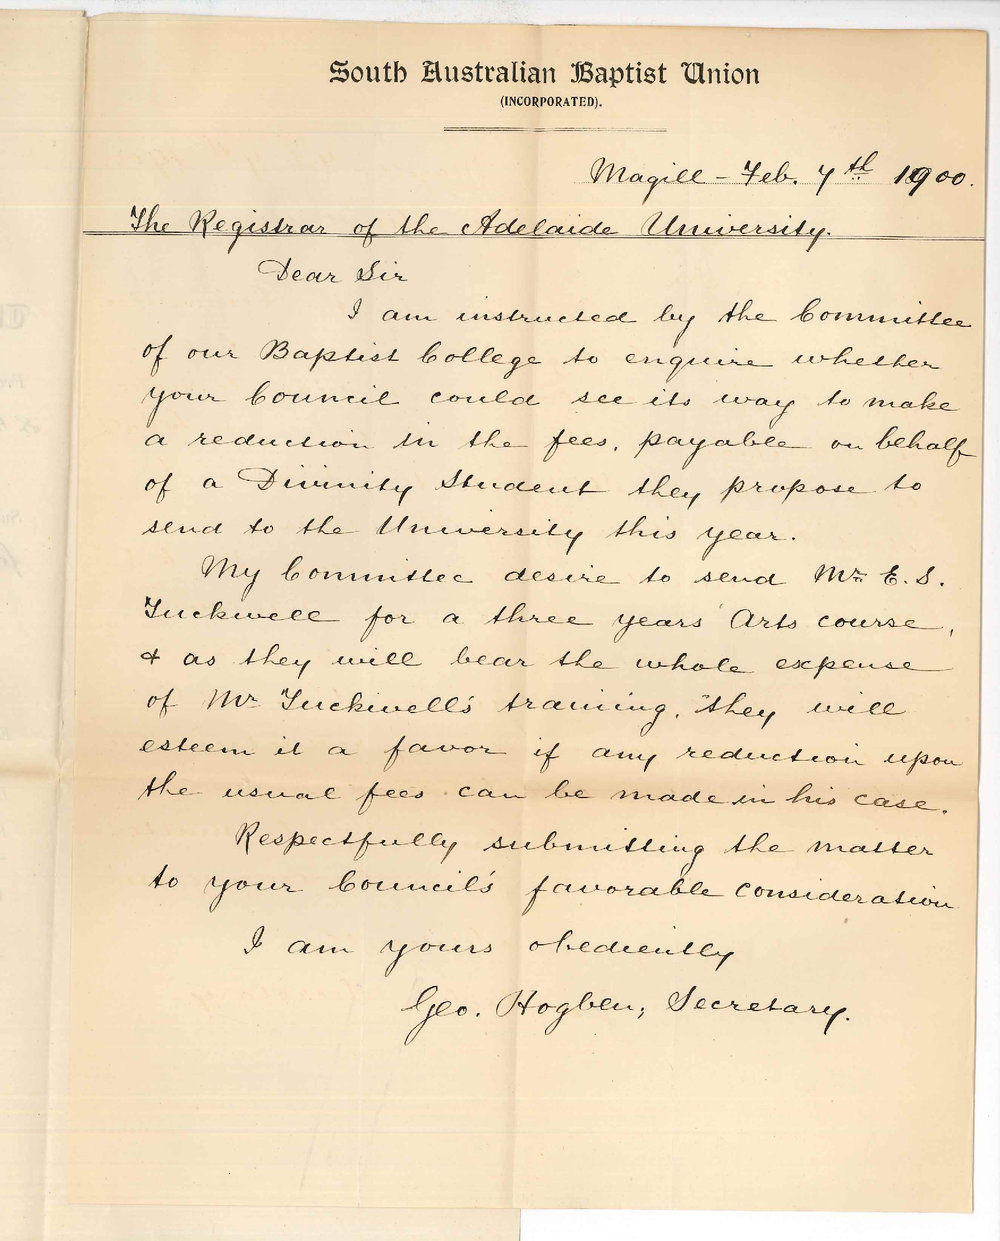 South Australian Baptist Union
(INCORPORATED).
Magill - Feb. 7th 1900.
The Registrar of the Adelaide University.
Dear Sir
I am instructed by the Committee
of our Baptist College to enquire whether
your Council could see its way to make
a reduction in the fees, payable on behalf
of a Divinity Student they propose to
send to the University this year.
My Committee desire to send Mr. E. S.
Tuckwell for a three years' Arts course,
& as they will bear the whole expense
of Mr Tuckwell's training, they will
esteem it a favor if any reduction upon
the usual fees can be made in his case.
Respectfully submitting the matter
to your Council's favorable consideration
I am yours obediently
Geo. Hogben, Secretary.